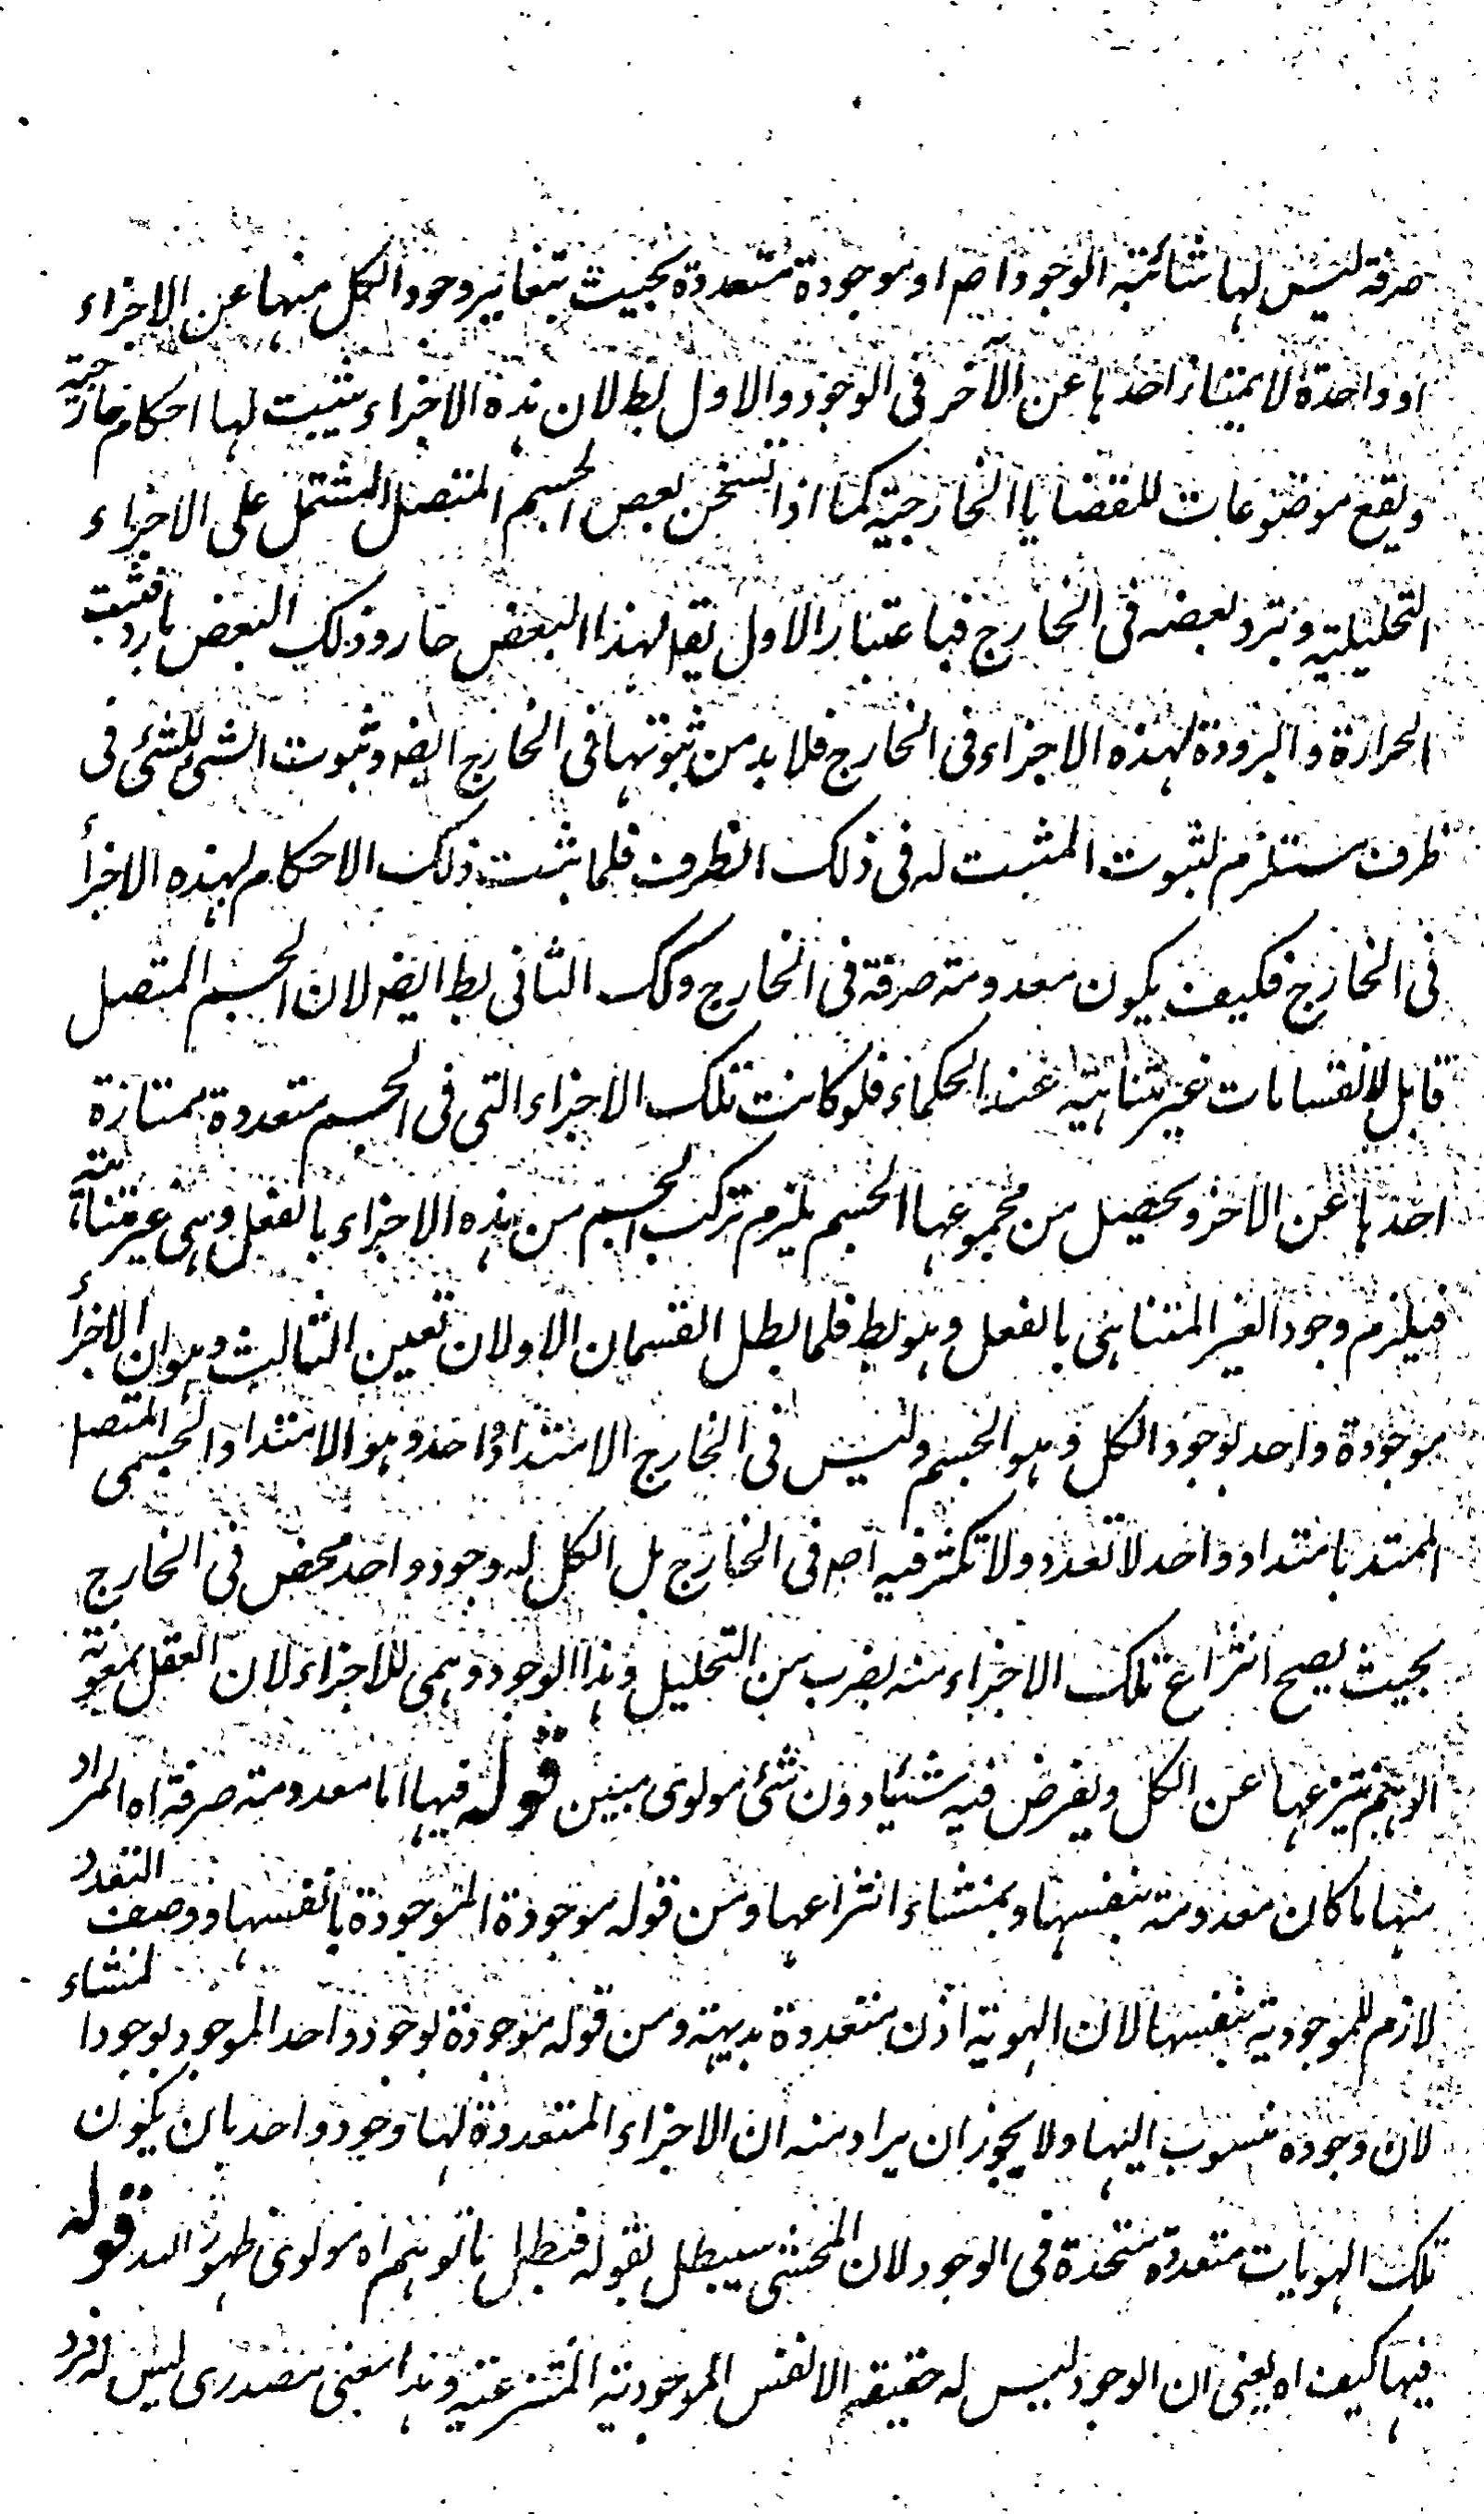 صرفة ليس لها شائبة الوجود اصم او موجودة متعددة بحيث يتغاير وجود الكل منها عن الاجزاء
او واحدة لا يمتاز احدها عن الآخر فى الوجود والاول بط لان هذه الاجزاء يثبت لها احكام خارجية
ويقع موضوعات للقضايا الخارجية كما اذا تسخن بعض الجسم المتصل المشتمل على الاجزاء
التحليلية وتبرد بعضه فى الخارج فباعتبار الاول يقا لهذا البعض حار وذلك البعض بارد فثبت
الحرارة والبرودة لهذه الاجزاء فى الخارج فلا بد من ثبوتها فى الخارج ايضا وثبوت الشئ للشئ فى
ظرف مستلزم لثبوت المثبت له فى ذلك الظرف فلما ثبت ذلك الاحكام لهذه الاجزأ
فى الخارج فكيف يكون معدومة صرفة فى الخارج وكك الثانى بط ايضا لان الجسم المتصل
قابل لانقسامات غير متناهية عند الحكماء فلو كانت تلك الاجزاء التى فى الجسم متعددة ممتازة
احدها عن الاخر ويحصل من مجموعها الجسم يلزم تركب الجسم من هذه الاجزاء بالفعل وهى غير متناهية
فيلزم وجود الغير المتناهى بالفعل وهو بط فلما بطل القسمان الاولان تعين الثالث وهو ان الاجزأ
موجودة واحد بوجود الكل وهو الجسم وليس فى الخارج الا امتداد واحد وهو الامتداد الجسمى المتصل
الممتد بامتداد واحد لا تعدد ولا تكثر فيه اصم فى الخارج بل الكل له وجود واحد محض فى الخارج
بحيث يصح انتزاع تلك الاجزاء منه بضرب من التحليل وهذا الوجود وهمى للاجزاء لان العقل بمعونة
الوهم ينتزعها عن الكل ويفرض فيه شيئا دون شئ مولوى مبين قوله فيها اما معدومة صرفة اه المراد
منها ما كان معدومة بنفسها وبمنشاء انتزاعها ومن قوله موجودة الموجودة بانفسها ووصف التعدد
لازم للموجودية بنفسها لان الهوية اذن متعددة بديهة ومن قوله موجودة بوجود واحد الموجود بوجود المنشاء
لان وجوده منسوب اليها ولا يجوز ان يراد منه ان الاجزاء المتعددة لها وجود واحد بان يكون
تلك الهويات متعددة متحدة فى الوجود لان المحشى سيبطل بقوله فبطل ما توهم اه مولوى ظهور الله قوله
فيها كيف اه يعنى ان الوجود ليس له حقيقة الا نفس الموجودية المنتزعة وهذا معنى مصدرى ليس له فرد